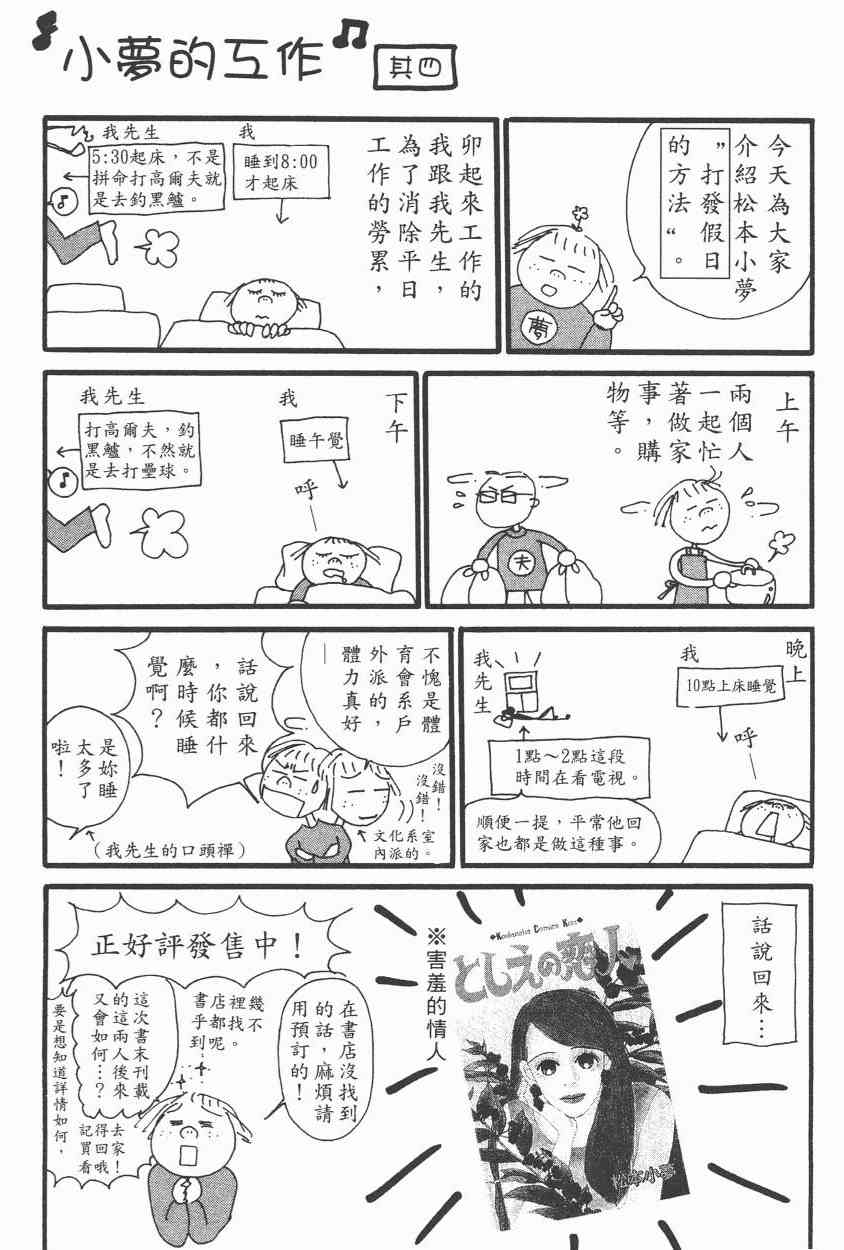 小夢的工作
其四
今天為大家
介紹松本小夢
”打發假日
的方法“。
夢
卯起來工作的
我跟我先生，
為了消除平日
工作的勞累，
我
睡到8:00
才起床
我先生
5:30起床，不是
拼命打高爾夫就
是去釣黑鱸。
上午
兩個人
一起忙
著做家
事，購
物等。
夫
下午
我
睡午覺
呼
我先生
打高爾夫，釣
黑鱸，不然就
是去打壘球。
晚上
我
10點上床睡覺
呼
我先生
1點～2點這段
時間在看電視。
順便一提，平常他回
家也都是做這種事。
不愧是體
育會系戶
外派的，
體力真好
話說回來
，你都什
麼時候睡
覺啊？
沒錯！
沒錯！
文化系室
內派的。
是妳睡
太多了
啦！
（我先生的口頭禪）
話說回來…
Kodansha Comics Kiss
としえの恋人
松本小夢
※害羞的情人
正好評發售中！
在書店沒找到
的話，麻煩請
用預訂的！
幾不
裡找
店都呢。
書乎到
這次書末刊載
的這兩人後來
又會如何…？
要是想知道詳情如何，
記得去
買回家
看哦！